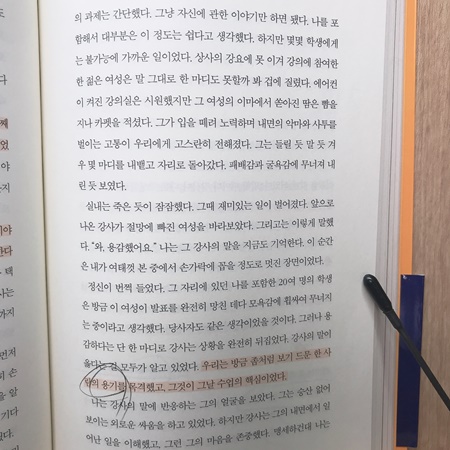 의 과제는 간단했다. 그냥 자신에 관한 이야기만 하면 됐다. 나를 포
함해서 대부분은 이 정도는 쉽다고 생각했다. 하지만 몇몇 학생에게
는 불가능에 가까운 일이었다. 상사의 강요에 못 이겨 강의에 참여한
한 젊은 여성은 말 그대로 한 마디도 못할까 봐 겁에 질렸다. 에어컨
이 켜진 강의실은 시원했지만 그 여성의 이마에서 쏟아진 땀은 뺨을
지나 카펫을 적셨다. 그가 입을 떼려 노력하며 내면의 악마와 사투를
벌이는 고통이 우리에게 고스란히 전해졌다. 그는 들릴 듯 말 듯 겨
우 몇 마디를 내뱉고 자리로 돌아갔다. 패배감과 굴욕감에 무너져 내
린 듯 보였다.
실내는 죽은 듯이 잠잠했다. 그때 재미있는 일이 벌어졌다. 앞으로
나온 강사가 절망에 빠진 여성을 바라보았다. 그리고는 이렇게 말했
다. “와, 용감했어요.” 나는 그 강사의 말을 지금도 기억한다. 이 순간
은 내가 여태껏 본 중에서 손가락에 꼽을 정도로 멋진 장면이었다.
정신이 번쩍 들었다. 그 자리에 있던 나를 포함한 20여 명의 학생
은 방금 이 여성이 발표를 완전히 망친 데다 모욕감에 휩싸여 무너지
는 중이라고 생각했다. 당사자도 같은 생각이었을 것이다. 그러나 용
감하다는 단 한 마디로 강사는 상황을 완전히 뒤집었다. 강사의 말이
옳다는 걸 모두가 알고 있었다. 우리는 방금 좀처럼 보기 드문 한 사
람의 용기를 목격했고, 그것이 그날 수업의 핵심이었다.
나는 강사의 말에 반응하는 그의 얼굴을 보았다. 그는 승산 없어
보이는 외로운 싸움을 하고 있었다. 하지만 강사는 그의 내면에서 일
어난 일을 이해했고, 그런 그의 마음을 존중했다. 맹세하건대 나는